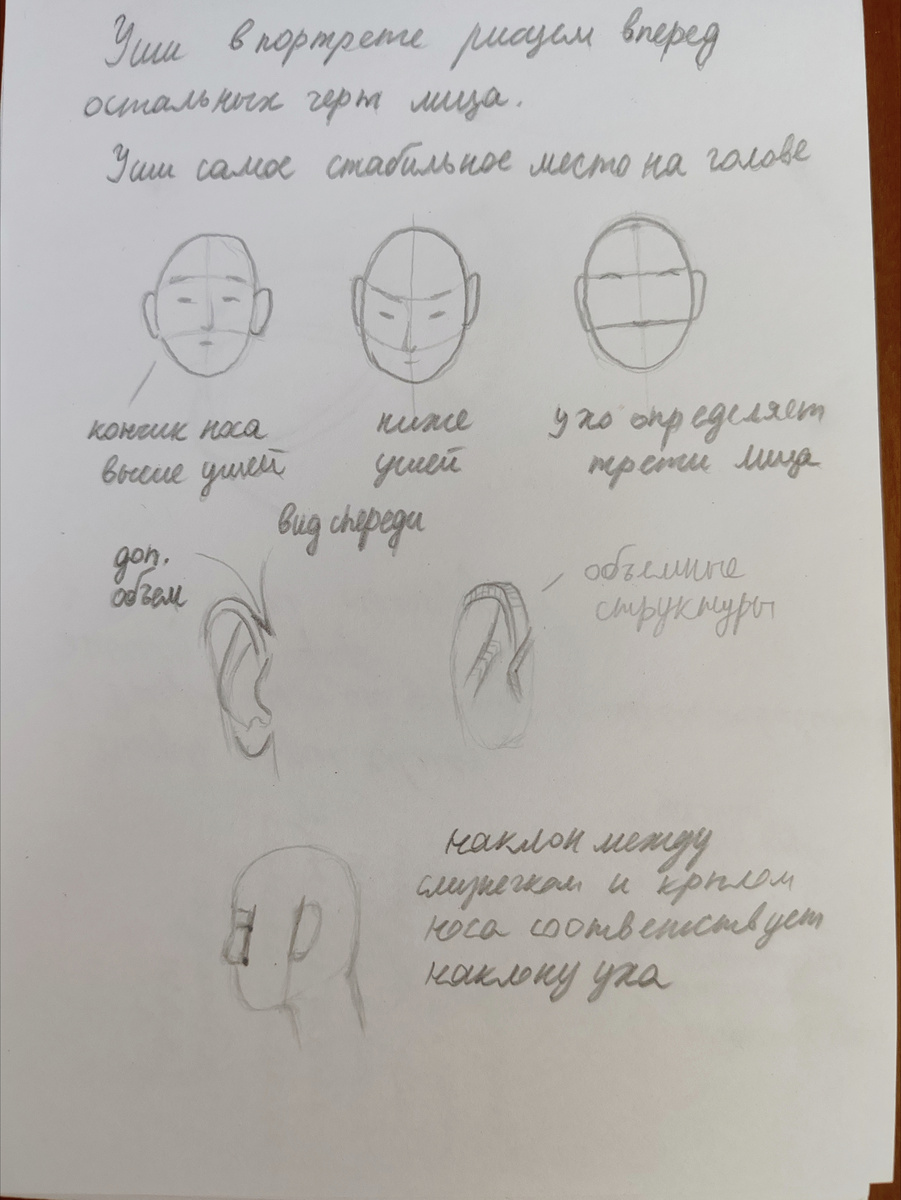 Уши в портрете рисуем вперед
остальных черт лица.
Уши самое стабильное место на голове
кончик носа
выше ушей
ниже
ушей
ухо определяет
трети лица
вид спереди
доп.
объем
объемные
структуры
наклон между
слизнечком и крылом
носа соответствует
наклону уха